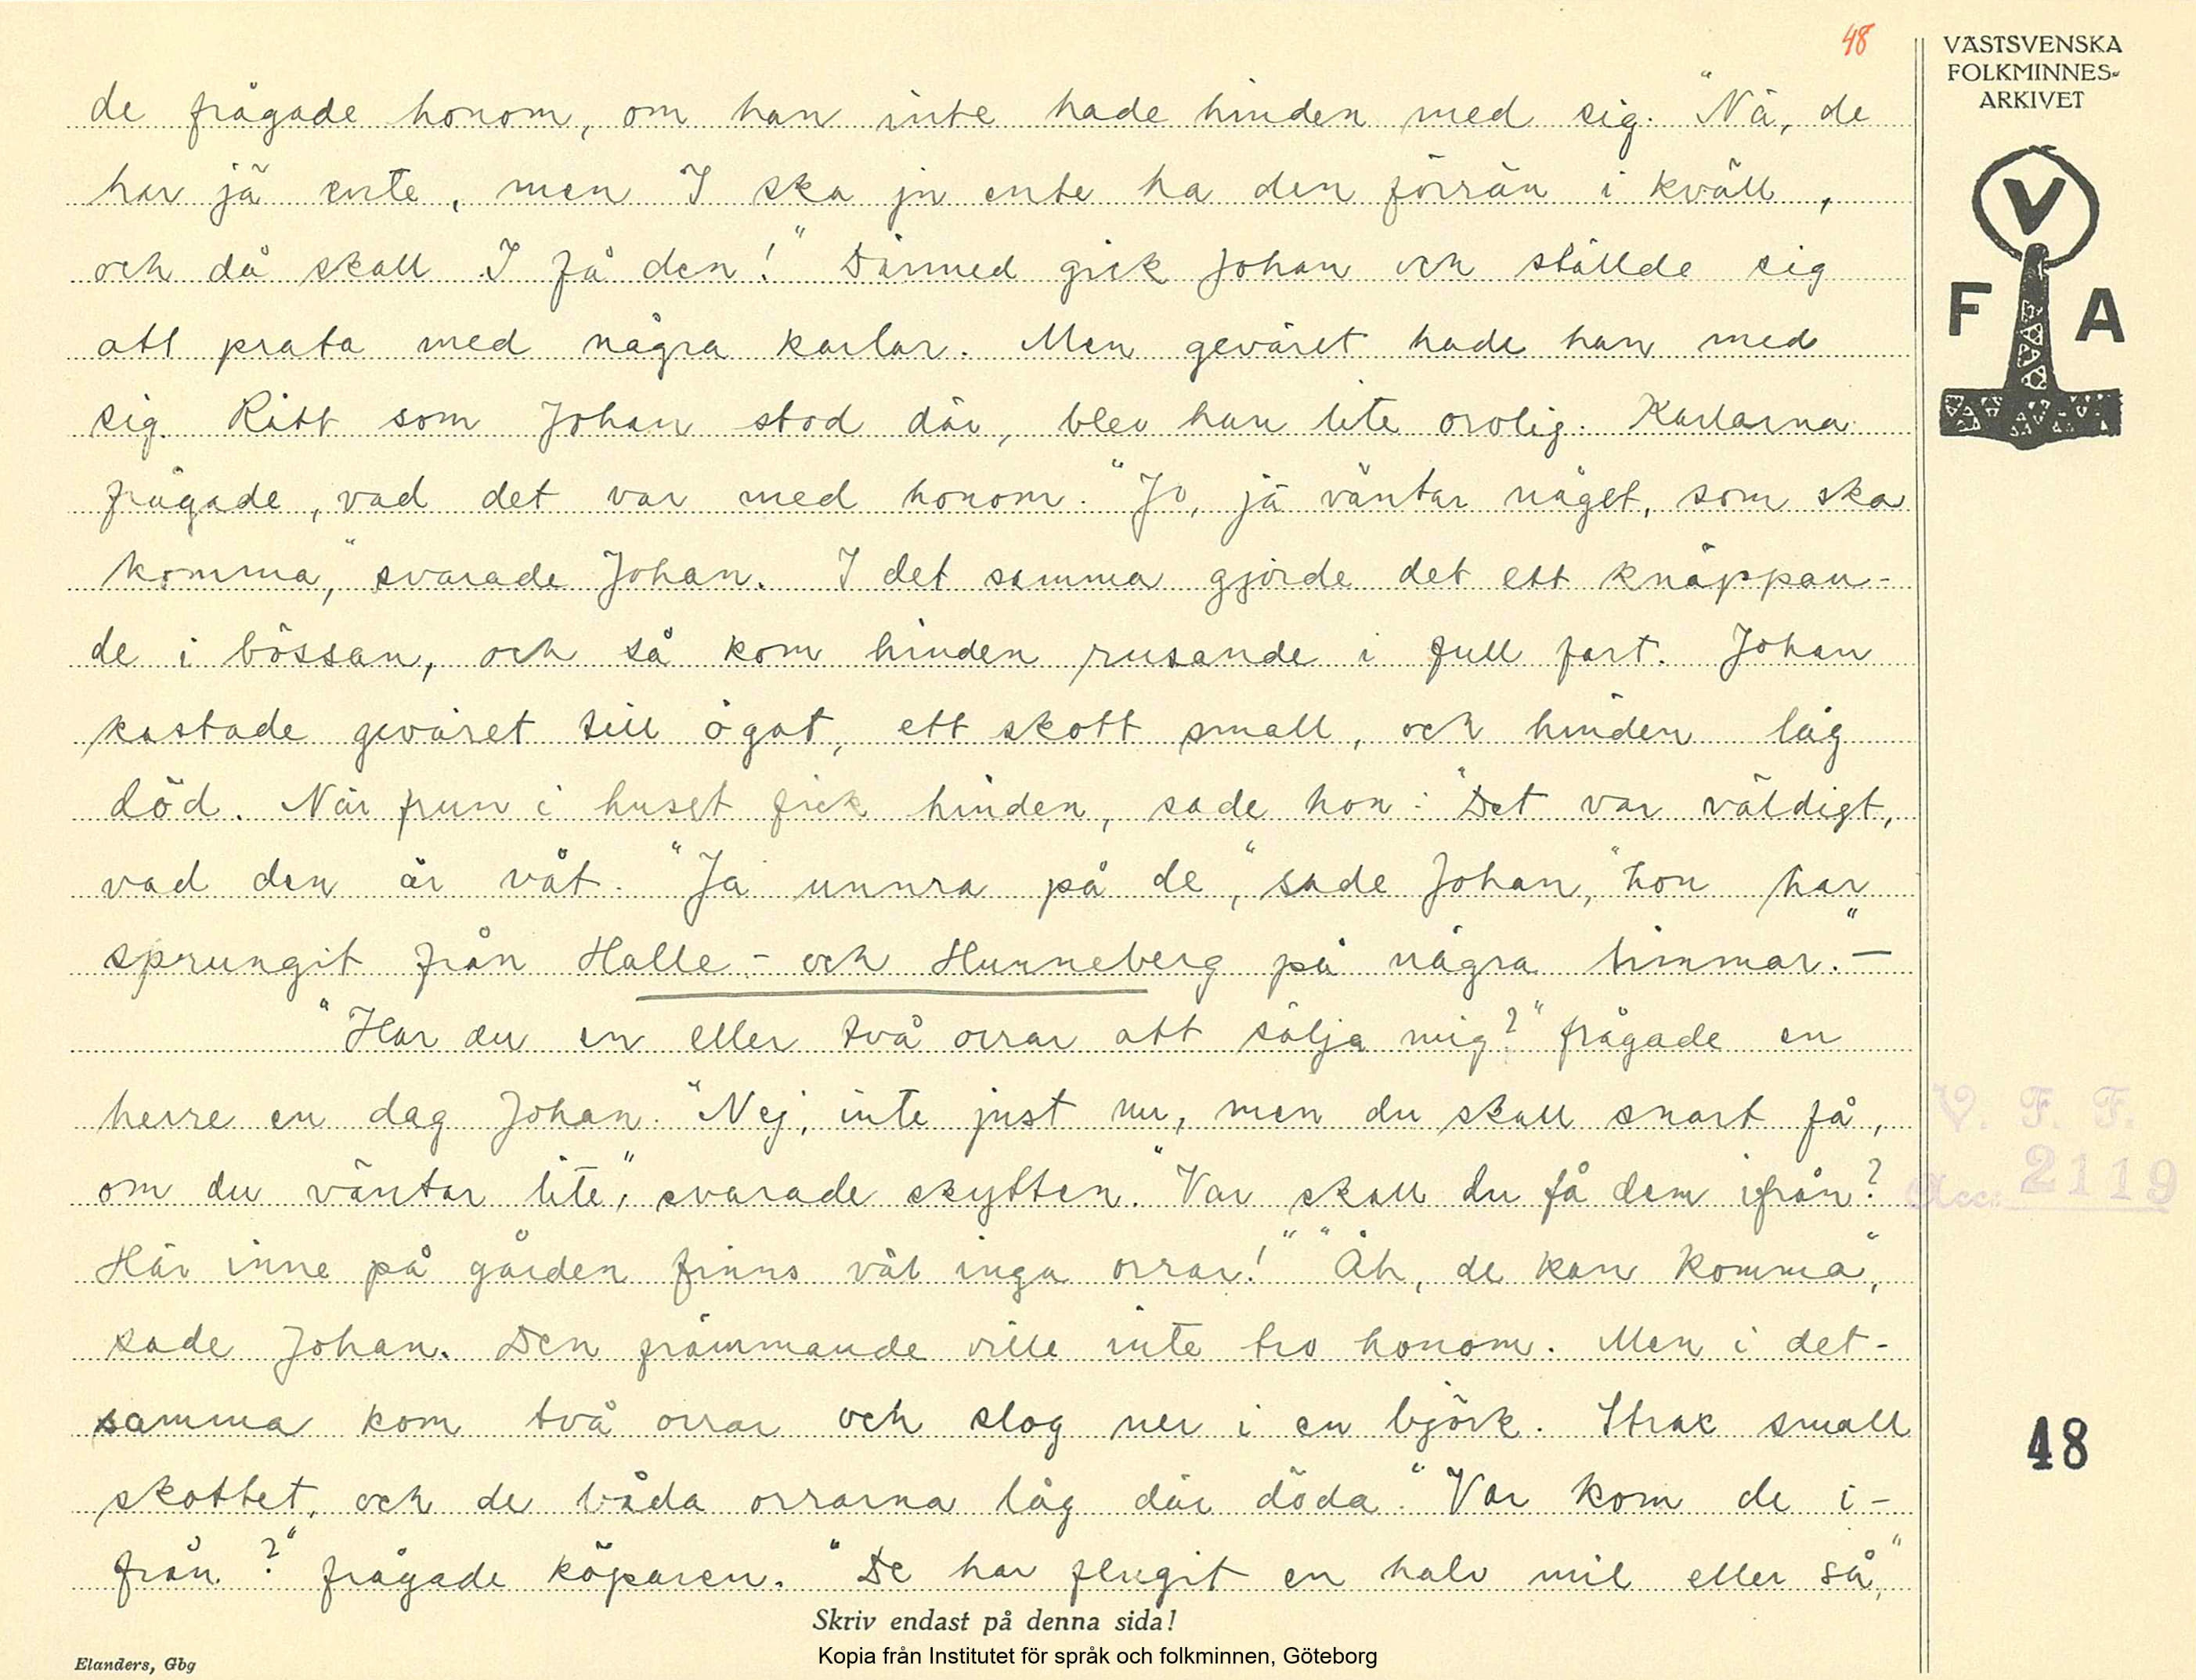 48
VÄSTSVENSKA
FOLKMINNES-
ARKIVET
V
F A
de frågade honom, om han inte hade hinden med sig. "Nä, de
har jä ente, men I ska ju ente ha den förrän i kväll,
och då skall I få den!" Därmed gick Johan och ställde sig
att prata med några karlar. Men geväret hade han med
sig. Rätt som Johan stod där, blev han lite orolig. Karlarna
frågade, vad det var med honom. "Jo, jä väntar något, som ska
komma," svarade Johan. I det samma gjorde det ett knäppan-
de i bössan, och så kom hinden rusande i full fart. Johan
kastade geväret till ögat, ett skott small, och hinden låg
död. När frun i huset fick hinden, sade hon: "Det var väldigt,
vad den är våt. "Ja unnra på de," sade Johan, "hon har
sprungit från Halle- och Hunneberg på några timmar." –
"Har du en eller två orrar att sälja mig?" frågade en
herre en dag Johan. "Nej, inte just nu, men du skall snart få,
om du väntar lite," svarade skytten. "Var skall du få dem ifrån?
Här inne på gården finns väl inga orrar!" "Åh, de kan komma",
sade Johan. Den främmande ville inte tro honom. Men i det-
samma kom två orrar och slog ner i en björk. Strax small
skottet, och de båda orrarna låg där döda. "Var kom de i-
från?" frågade köparen. "De har flugit en halv mil eller så,"
V. F. F.
Acc: 2119
48
Skriv endast på denna sida!
Kopia från Institutet för språk och folkminnen, Göteborg
Elanders, Gbg